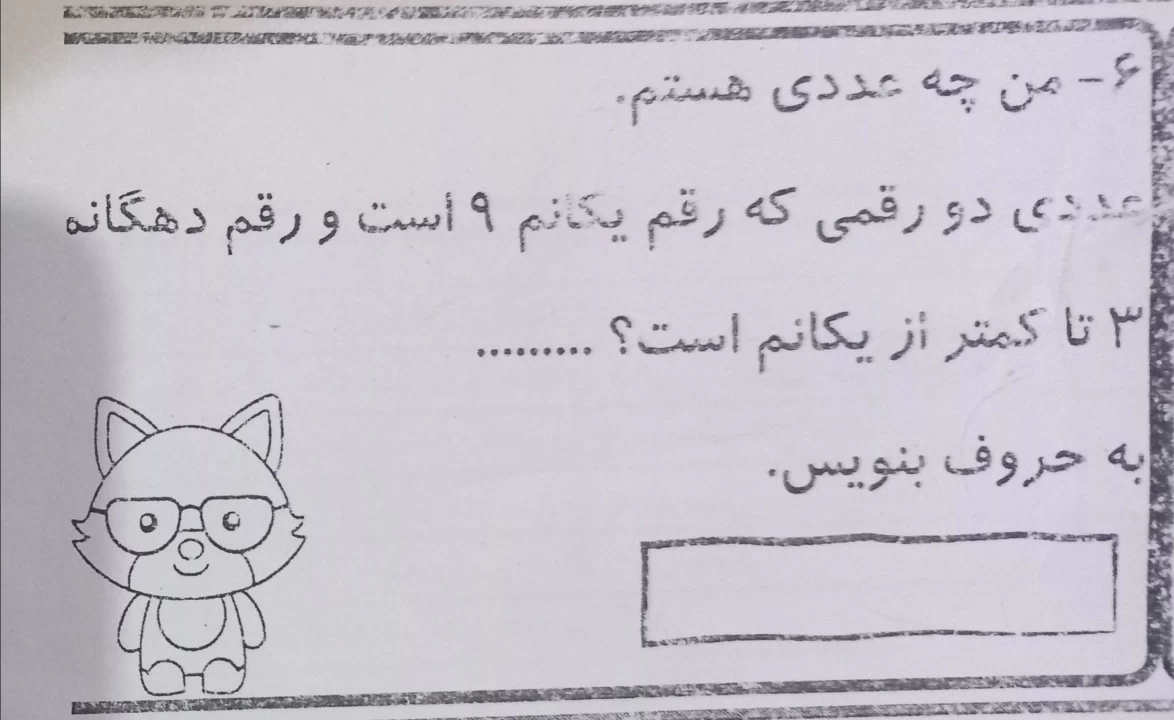 ۶- من چه عددی هستم.
عددی دو رقمی که رقم یکانم ۹ است و رقم دهگانه
۳ تا کمتر از یکانم است؟ .........
به حروف بنویس.